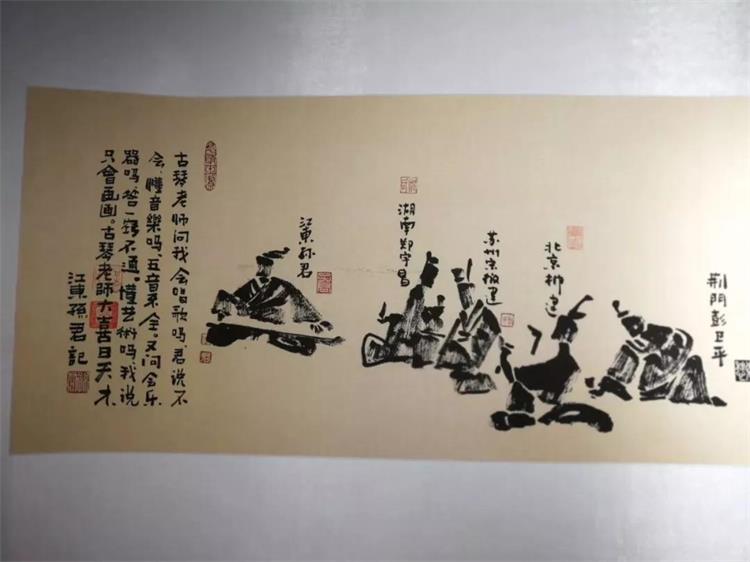 荆門彭卫平
北京柳建
苏州
湖南郑宇昌
江東孙君
古琴老师问我会唱歌吗,君说不
会,懂音樂吗,五音不全,又问会乐
器吗,答一窍不通。懂艺術吗,我说
只會画画。古琴老師大喜曰天才
江東孫君記